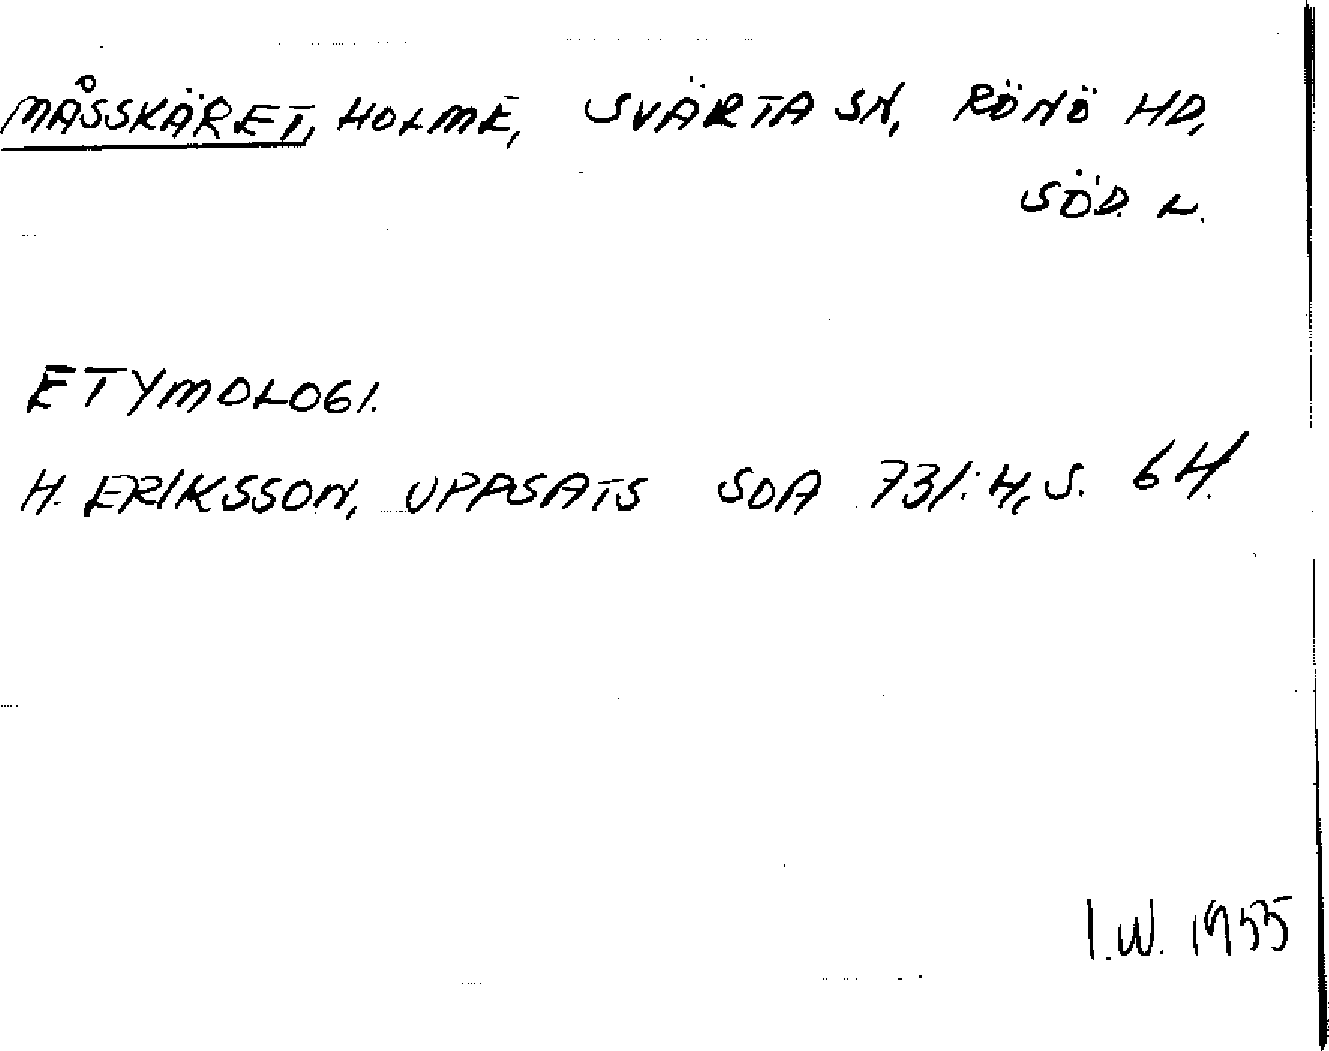 MÅSSKÄRET, HOLME, SVÄRTA SN, RÖNÖ HD,
SÖD. L.
ETYMOLOGI.
H. ERIKSSON, UPPSATS SOA 731:4, S. 64.
I.W. 1955